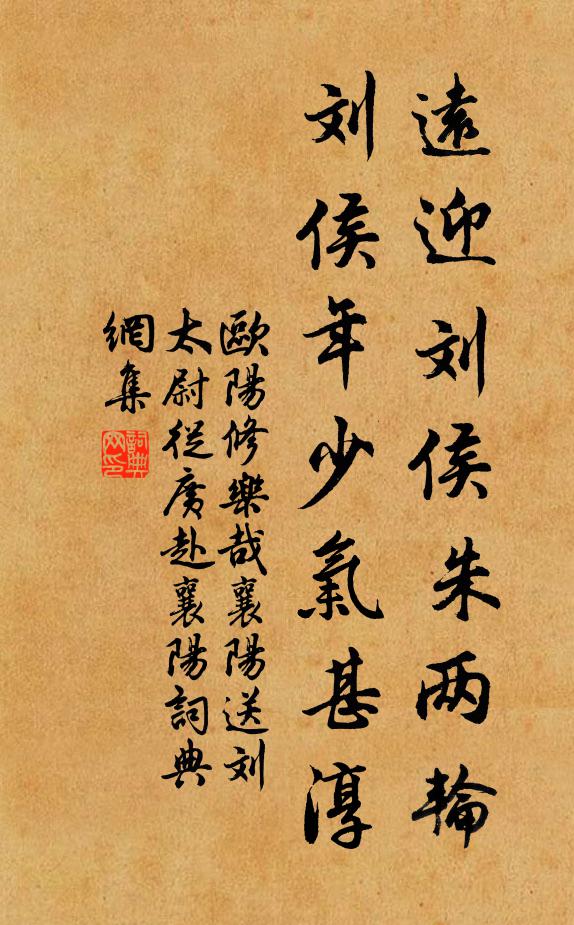 遠迎刘侯朱两輪
刘侯年少氣甚淳
歐陽修樂哉襄陽送刘
太尉從廣赴襄陽詞典
網集
詞典
网印